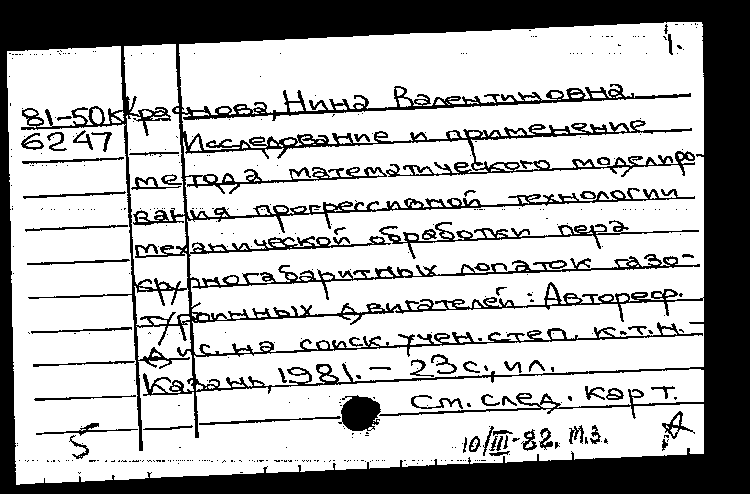 1.
81-50к Краснова, Нина Валентиновна.
6247 Исследование и применение
метода математического моделиро-
вания прогрессивной технологии
механической обработки пера
крупногабаритных лопаток газо-
турбинных двигателей: Автореф.
дис. на соиск. учен. степ. к.т.н. -
Казань, 1981. - 23 с., ил.
См. след. карт.
5 10/III-82. т.з.